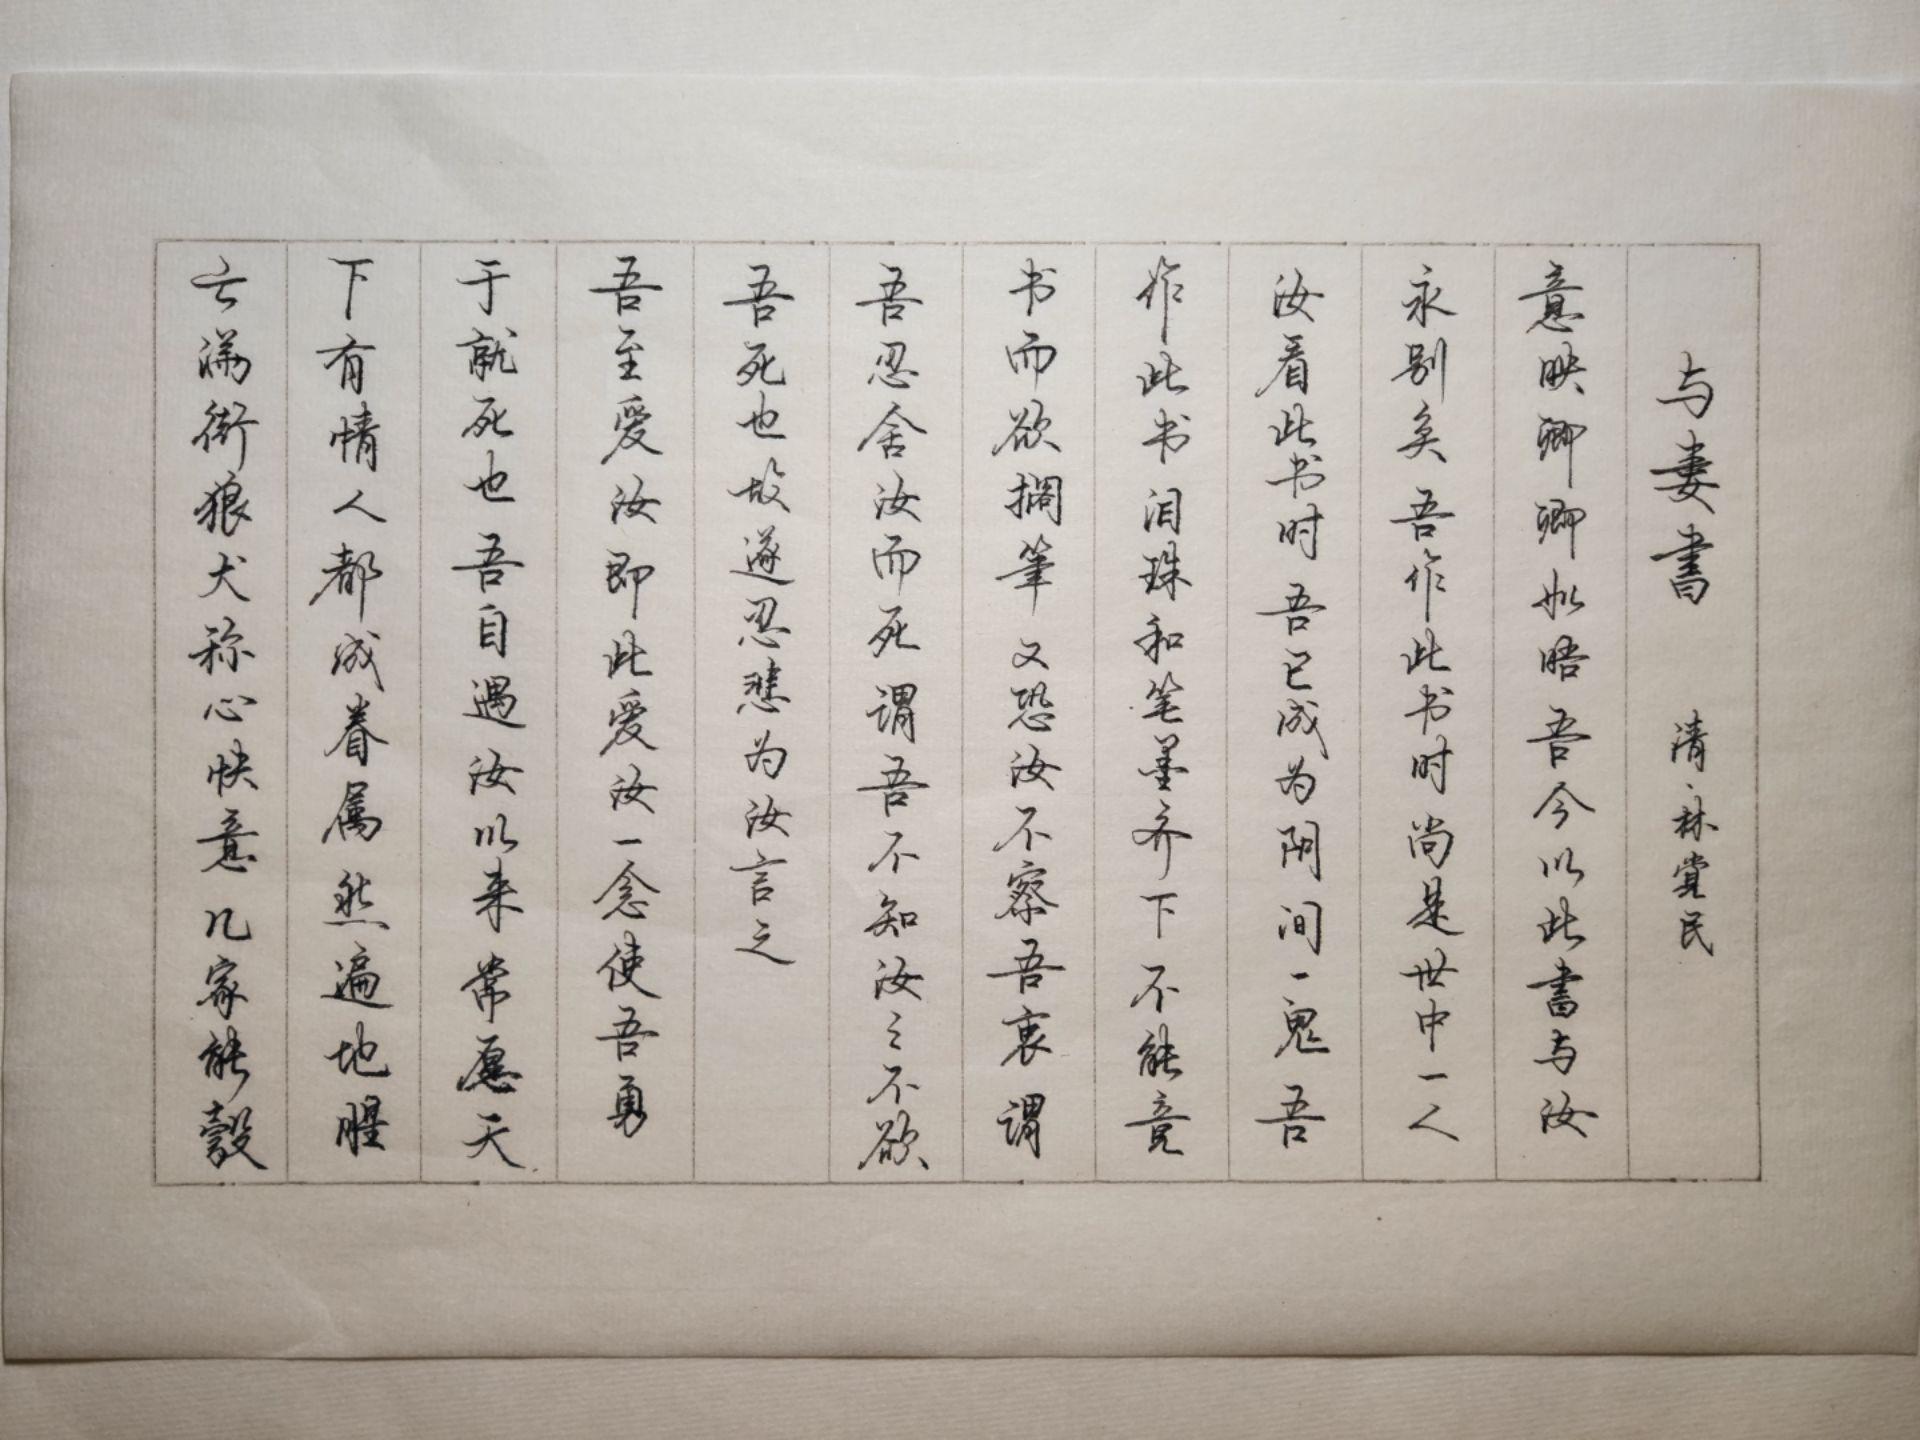 与妻書 清·林觉民
意映卿卿如晤吾今以此書与汝
永别矣吾作此书时尚是世中一人
汝看此书时吾已成为阴间一鬼吾
作此书泪珠和笔墨齐下不能竟
书而欲搁筆又恐汝不察吾衷谓
吾忍舍汝而死谓吾不知汝之不欲
吾死也故遂忍悲为汝言之
吾至爱汝即此爱汝一念使吾勇
于就死也吾自遇汝以来常愿天
下有情人都成眷属然遍地腥
云满街狼犬称心快意几家能彀